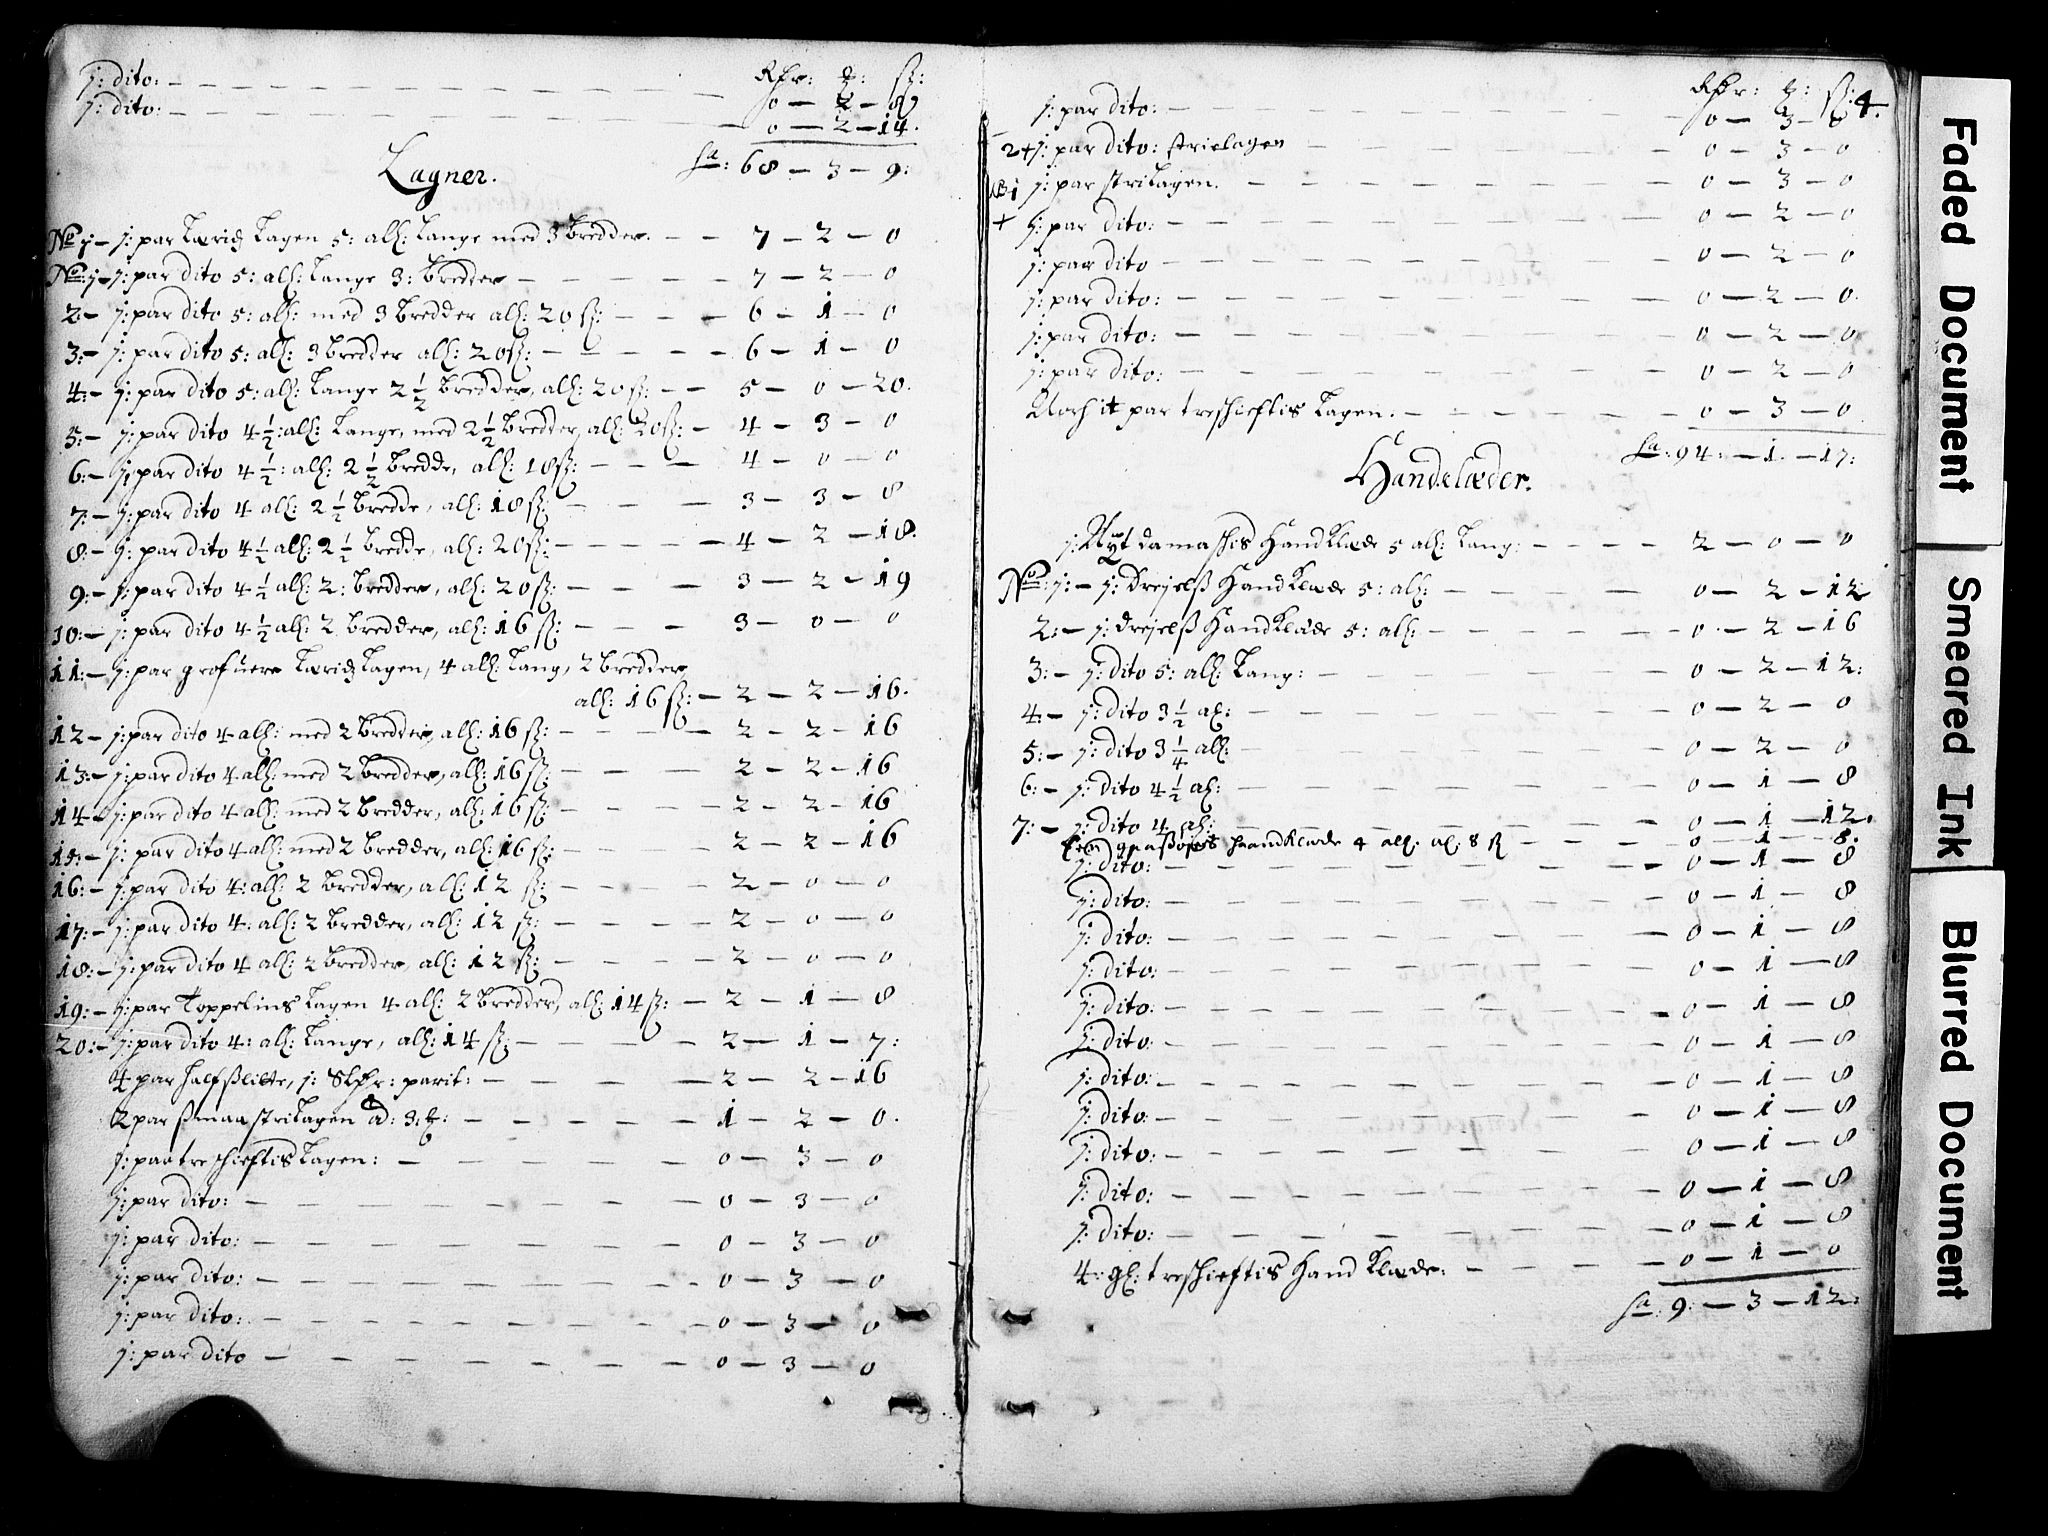 Rdr: ℥: ß:
j: dito: — 0 — 2 — 8
j: dito: — 0 — 2 — 14.
Sa: 68 — 3 — 9:
Lagner.
No j — j: par Læridz Lagen 5: all: Lange med 3 bredder. — 7 — 2 — 0
No: j — j: par dito 5: all: Lange 3: bredder — 7 — 2 — 0
2: — j: par dito 5: all: med 3 bredder all: 20 ß: — 6 — 1 — 0
3: — j: par dito 5: all: 3 bredder all: 20 ß: — 6 — 1 — 0
4: — j: par dito 5: all: Lange 2 1/2 bredder, all: 20 ß: — 5 — 0 — 20.
5: — j: par dito 4 1/2: all: Lange, med 2 1/2 bredder, all: 20 ß: — 4 — 3 — 0
6: — j: par dito 4 1/2: all: 2 1/2 bredde, all: 18 ß: — 4 — 0 — 0
7: — j: par dito 4 all: 2 1/2 bredde, all: 18 ß: — 3 — 3 — 8
8: — j: par dito 4 1/2 all: 2 1/2 bredde, all: 20 ß: — 4 — 2 — 18.
9: — j: par dito 4 1/2 all: 2: bredder, all: 20 ß: — 3 — 2 — 19
10: — j: par dito 4 1/2 all: 2 bredder, all: 16 ß: — 3 — 0 — 0
11: — j: par grofuere Læridz Lagen, 4 all: Lang, 2 bredder,
all: 16 ß: — 2 — 2 — 16.
12 — j: par dito 4 all: med 2 bredder, all: 16 ß: — 2 — 2 — 16
13: — j: par dito 4 all: med 2 bredder, all: 16 ß: — 2 — 2 — 16
14 — j: par dito 4 all: med 2 bredder, all: 16 ß: — 2 — 2 — 16
15: — j: par dito 4 all: med 2 bredder, all: 16 ß: — 2 — 2 — 16
16: — j: par dito 4: all: 2 bredder, all: 12 ß: — 2 — 0 — 0
17: — j: par dito 4: all: 2 bredder, all: 12 ß: — 2 — 0 — 0
18: — j: par dito 4 all: 2 bredder, all: 12 ß: — 2 — 0 — 0
19: — j: par Toppelins Lagen 4 all: 2 bredder, all: 14 ß: — 2 — 1 — 8
20: — j: par dito 4: all: Lange, all: 14 ß: — 2 — 1 — 7:
4 par halfslitte, j: Sldr: parit: — 2 — 2 — 16
2 par smaa striLagen ad: 3: ℥: — 1 — 2 — 0.
j: paa treschieftis Lagen: — 0 — 3 — 0
j: par dito: — 0 — 3 — 0
j: par dito: — 0 — 3 — 0
j: par dito: — 0 — 3 — 0
j: par dito: — 0 — 3 — 0
j: par dito — 0 — 3 — 0
Rdr: ℥: ß: 4.
j: par dito: — 0 — 3 — 0
2 + j: par dito: strielagen — 0 — 3 — 0
j: par striLagen. — 0 — 3 — 0
+ j: par dito: — 0 — 2 — 0
j: par dito — 0 — 2 — 0
j: par dito: — 0 — 2 — 0.
j: par dito: — 0 — 2 — 0
j: par dito: — 0 — 2 — 0
Noch it par treschieftis Lagen: — 0 — 3 — 0
Sa: 94: — 1. — 17:
Handelæder.
j: Nyt damaschis HandKlæde 5 all: Lang: — 2 — 0 — 0
No: j: — j: Drejelß HandKlæde 5: all: — 0 — 2 — 12
2: — j: drejelß HandKlæde 5: all: — 0 — 2 — 16
3: — j: dito 5: all: Lang: — 0 — 2 — 12:
4: — j: dito 3 1/2 al: — 0 — 2 — 0
5: — j: dito 3 1/4 all: — 0 — 2 — 0
6: — j: dito 4 1/2 al: — 0 — 1 — 8
7: — j: dito 4 al: — 0 — 1 — 12.
haandKlæde 4 all: al: 8 ß — 0 — 1 — 8.
j: dito: — 0 — 1 — 8
j: dito: — 0 — 1 — 8
j: dito: — 0 — 1 — 8
j: dito: — 0 — 1 — 8
j: dito: — 0 — 1 — 8
j: dito: — 0 — 1 — 8
j: dito: — 0 — 1 — 8
j: dito: — 0 — 1 — 8
j: dito: — 0 — 1 — 8
j: dito: — 0 — 1 — 8
j: dito: — 0 — 1 — 8
4: gl: treschieftis Hand Klæde: — 0 — 1 — 0
Sa: 9: — 3 — 12:
Faded Document
Smeared Ink
Blurred Document